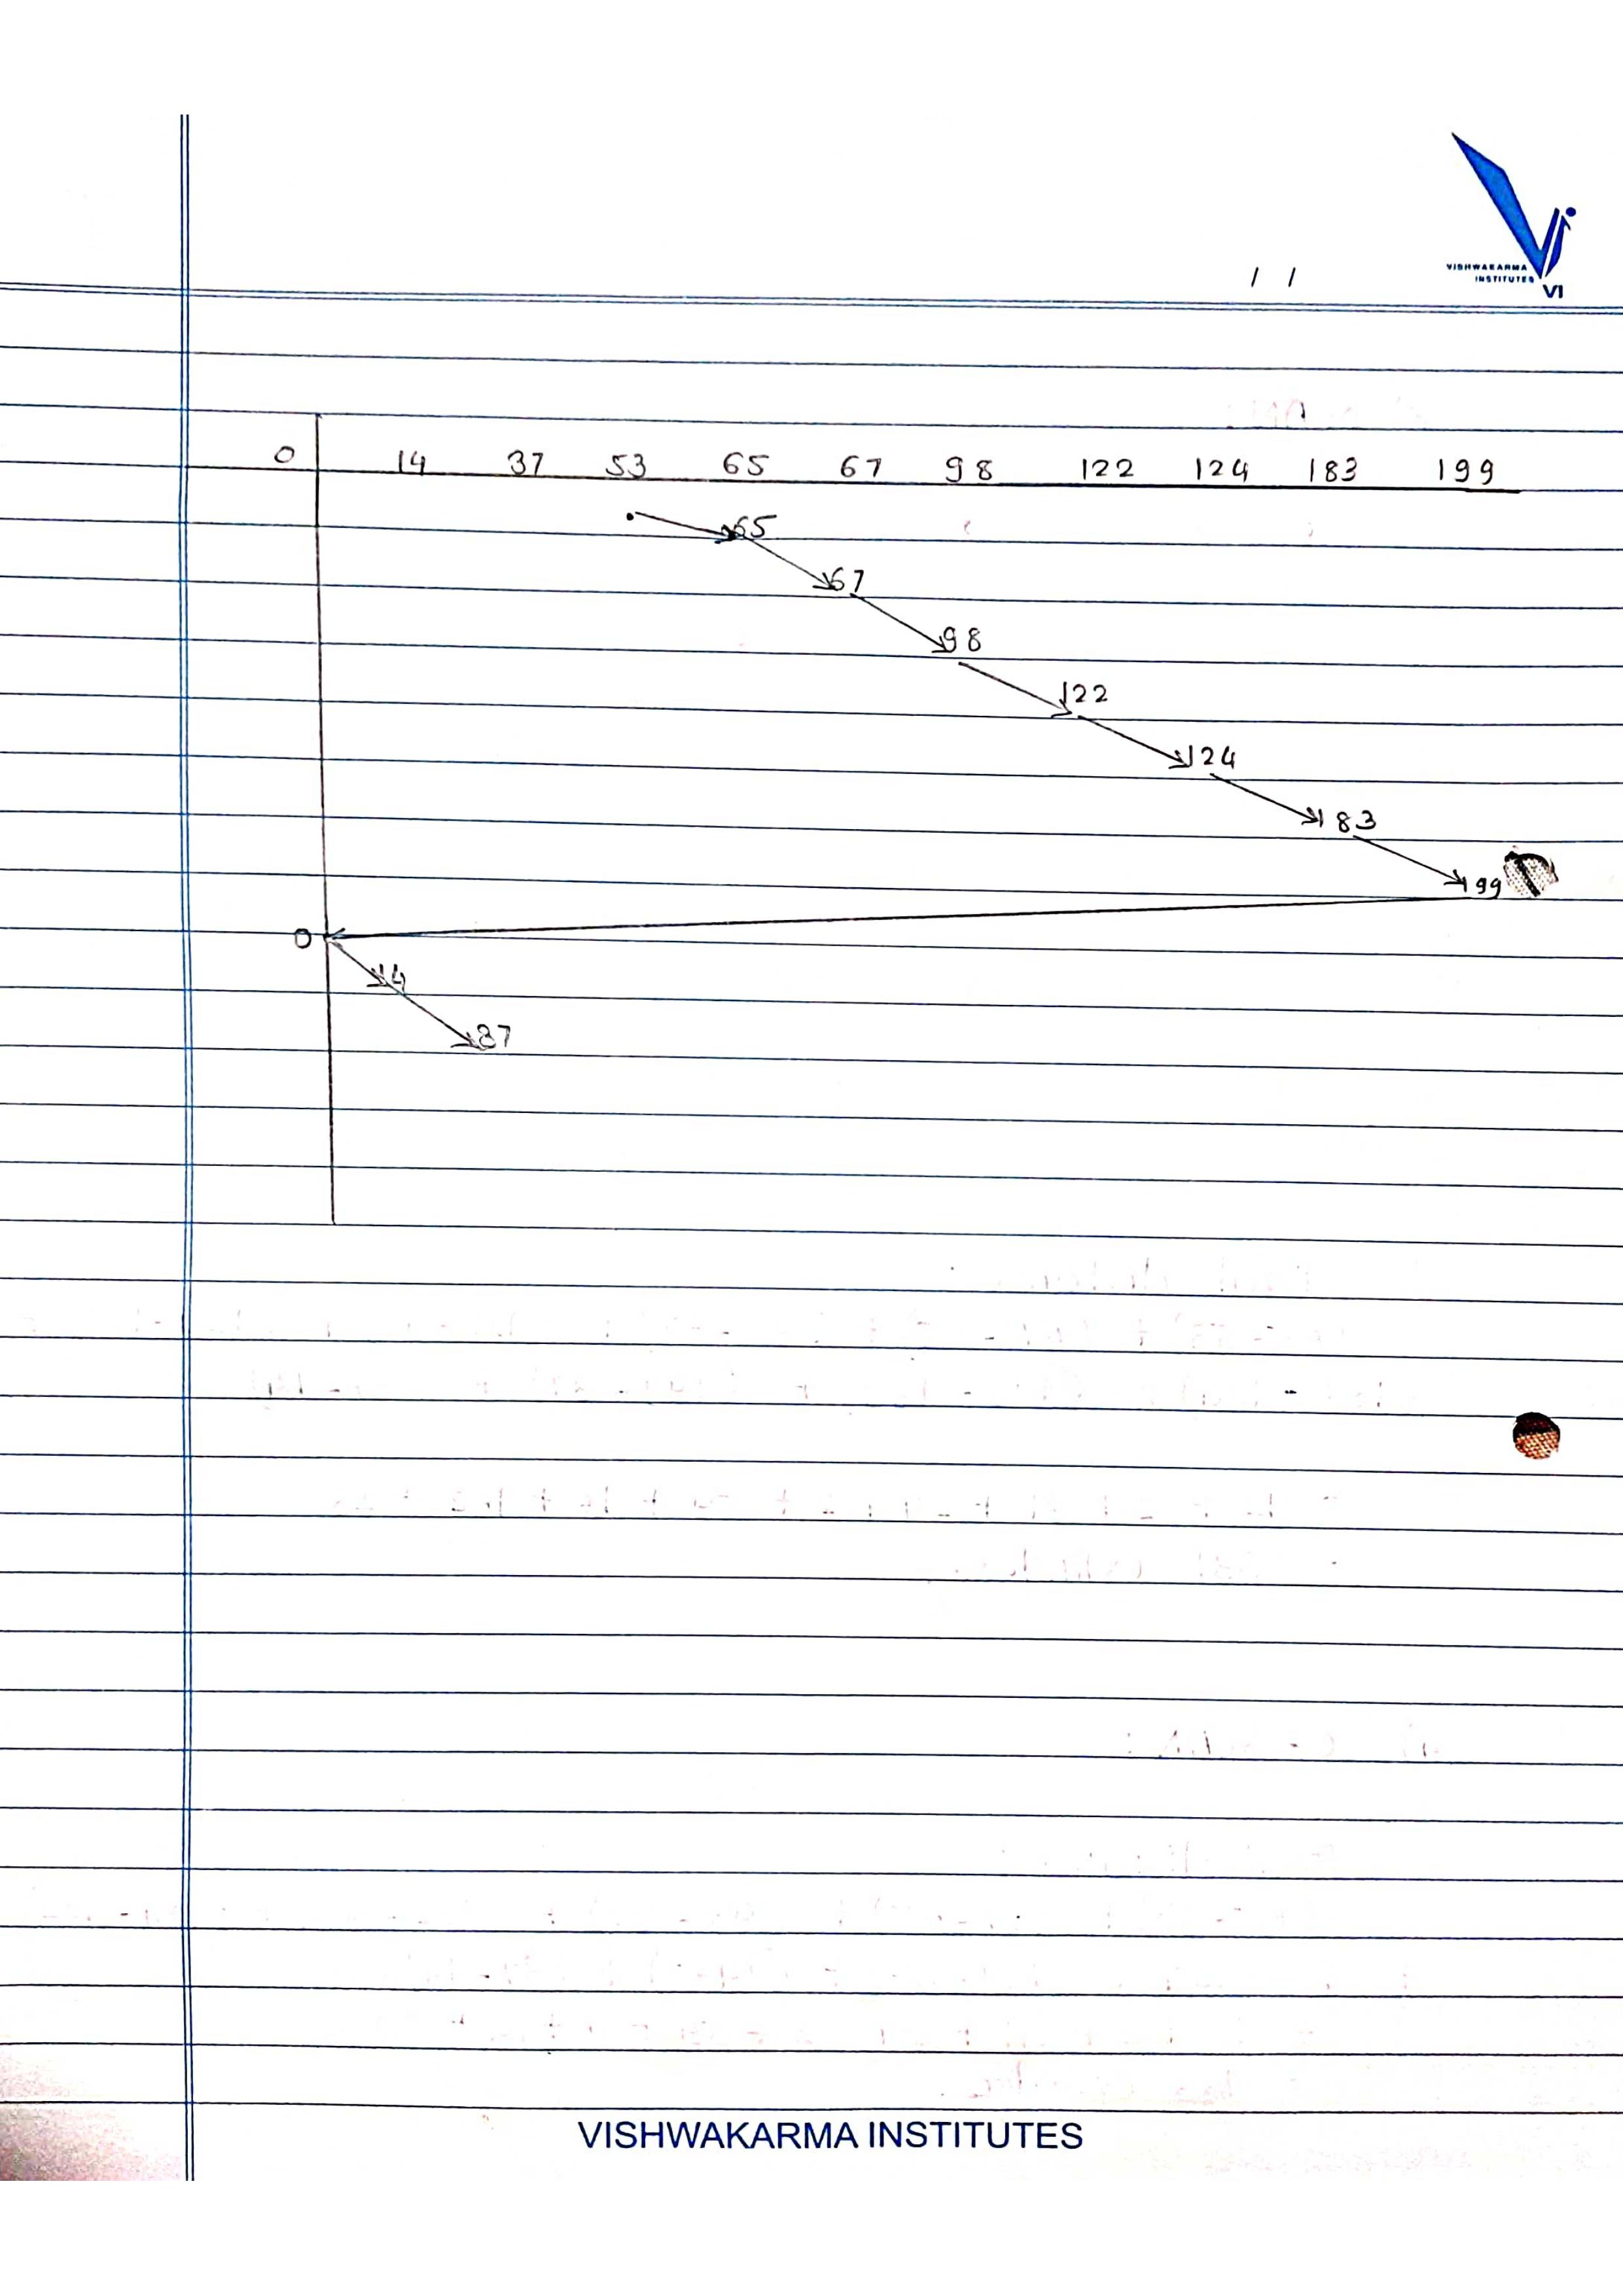 VISHWAKARMA
INSTITUTES
VI
/ /
0 14 37 53 65 67 98 122 124 183 199
65
67
98
122
124
183
199
0
14
37
VISHWAKARMA INSTITUTES